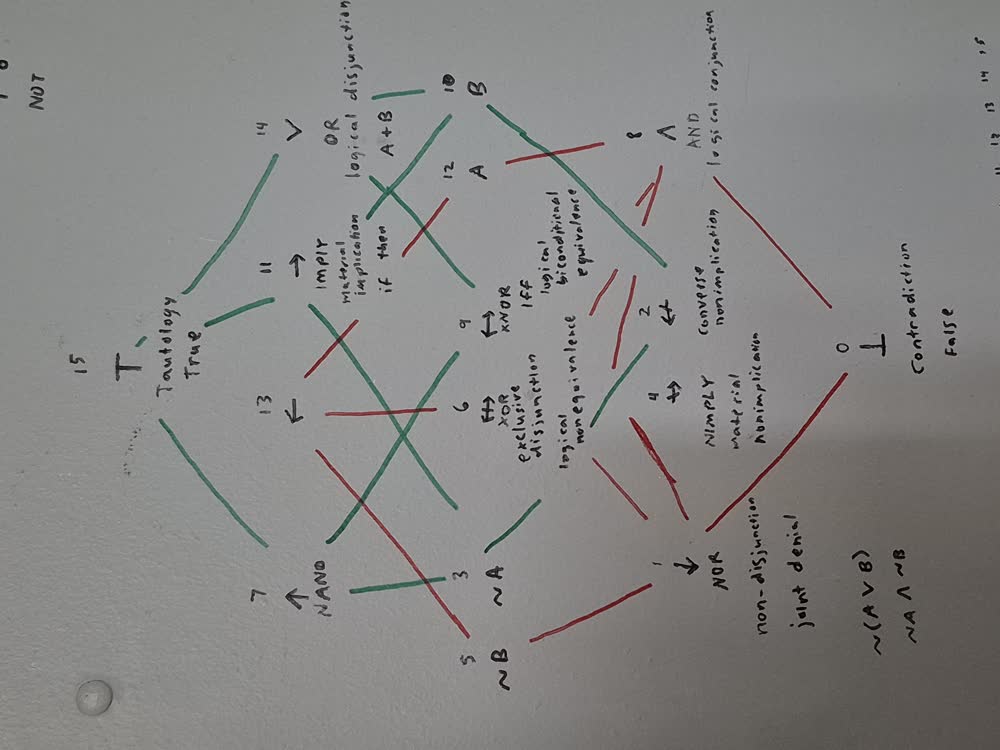 NOT
15
⊤
Tautology
True
7
↑
NAND
13
←
11
→
IMPLY
material
implication
if then
14
∨
OR
logical disjunction
A + B
5
~B
3
~A
6
↮
XOR
exclusive
disjunction
logical
nonequivalence
9
↔
XNOR
IFF
logical
biconditional
equivalence
12
A
10
B
1
↓
NOR
non-disjunction
joint denial
~(A ∨ B)
~A ∧ ~B
4
↛
NIMPLY
material
nonimplication
2
↚
converse
nonimplication
8
∧
AND
logical conjunction
0
⊥
Contradiction
False
12 13 14 15